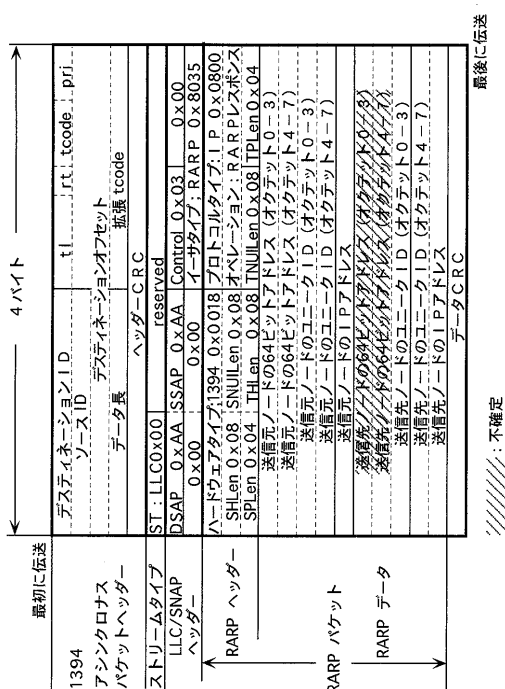 最初に伝送
4 バイト
1394
アシンクロナス
パケットヘッダー
デスティネーションID tl rt tcode pri
ソースID デスティネーションオフセット
データ長 拡張 tcode
ヘッダーCRC
ストリームタイプ ST : LLC0x00 reserved
LLC/SNAP
ヘッダー
DSAP 0xAA SSAP 0xAA Control 0x03 0x00
0x00 0x00 イーサタイプ:RARP 0x8035
RARP ヘッダー
ハードウェアタイプ:1394 0x0018 プロトコルタイプ:IP 0x0800
SHLen 0x08 SNUILen 0x08 オペレーション:RARPレスポンス
SPLen 0x04 THLen 0x08 TNUILen 0x08 TPLen 0x04
RARP パケット
RARP データ
送信元ノードの64ビットアドレス(オクテット0-3)
送信元ノードの64ビットアドレス(オクテット4-7)
送信元ノードのユニークID(オクテット0-3)
送信元ノードのユニークID(オクテット4-7)
送信元ノードのIPアドレス
送信先ノードの64ビットアドレス(オクテット0-3)
送信先ノードの64ビットアドレス(オクテット4-7)
送信先ノードのユニークID(オクテット0-3)
送信先ノードのユニークID(オクテット4-7)
送信先ノードのIPアドレス
データCRC
最後に伝送
:不確定